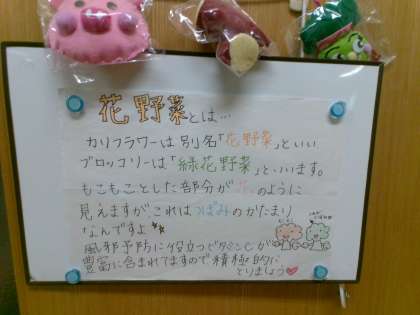 花野菜とは…
カリフラワーは別名「花野菜」といい
ブロッコリーは「緑花野菜」といいます。
もこもことした部分が花のように
見えますが、これはつぼみのかたまり
なんですよ
風邪予防に役立つビタミンCが
豊富に含まれてますので積極的に
とりましょう♥